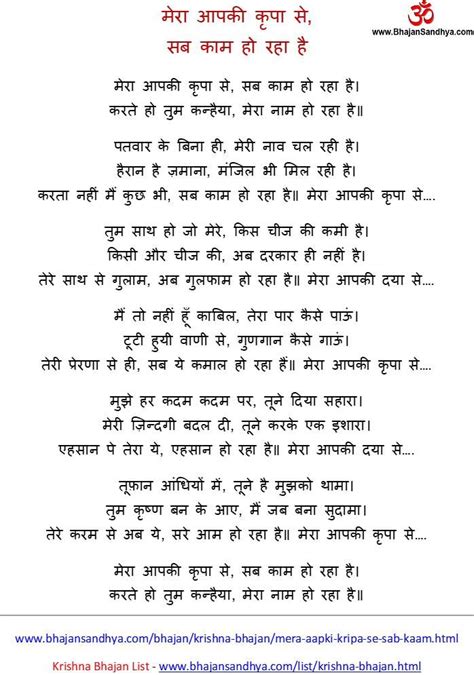 मेरा आपकी कृपा से,
सब काम हो रहा है
ॐ
www.BhajanSandhya.com
मेरा आपकी कृपा से, सब काम हो रहा है।
करते हो तुम कन्हैया, मेरा नाम हो रहा है॥
पतवार के बिना ही, मेरी नाव चल रही है।
हैरान है ज़माना, मंजिल भी मिल रही है।
करता नहीं मैं कुछ भी, सब काम हो रहा है॥ मेरा आपकी कृपा से….
तुम साथ हो जो मेरे, किस चीज की कमी है।
किसी और चीज की, अब दरकार ही नहीं है।
तेरे साथ से गुलाम, अब गुलफाम हो रहा है॥ मेरा आपकी दया से….
मैं तो नहीं हूँ काबिल, तेरा पार कैसे पाऊं।
टूटी हुयी वाणी से, गुणगान कैसे गाऊं।
तेरी प्रेरणा से ही, सब ये कमाल हो रहा हैं॥ मेरा आपकी कृपा से….
मुझे हर कदम कदम पर, तूने दिया सहारा।
मेरी ज़िन्दगी बदल दी, तूने करके एक इशारा।
एहसान पे तेरा ये, एहसान हो रहा है॥ मेरा आपकी दया से….
तूफ़ान आंधियों में, तूने है मुझको थामा।
तुम कृष्ण बन के आए, मैं जब बना सुदामा।
तेरे करम से अब ये, सरे आम हो रहा है॥ मेरा आपकी कृपा से….
मेरा आपकी कृपा से, सब काम हो रहा है।
करते हो तुम कन्हैया, मेरा नाम हो रहा है॥
www.bhajansandhya.com/bhajan/krishna-bhajan/mera-aapki-kripa-se-sab-kaam.html
Krishna Bhajan List - www.bhajansandhya.com/list/krishna-bhajan.html